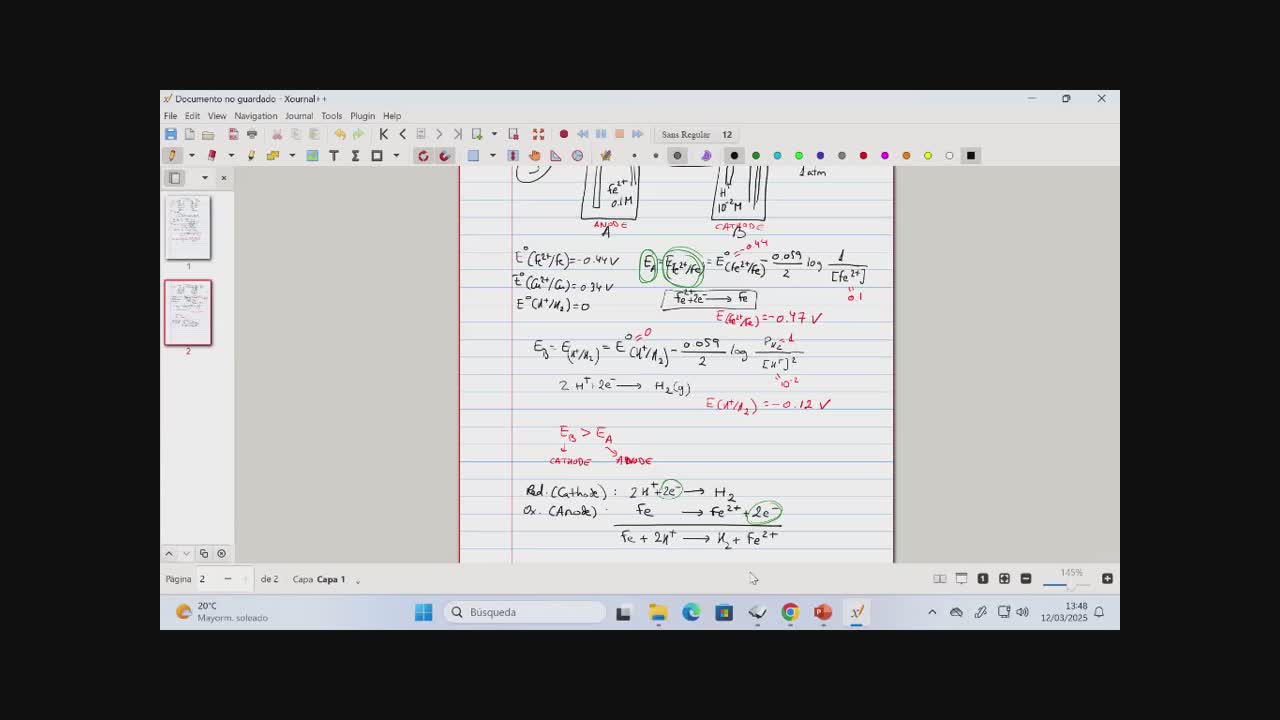 Documento no guardado - Xournal++
File Edit View Navigation Journal Tools Plugin Help
Sans Regular 12
Fe²⁺
0.1M
H⁺
10⁻²M
1 atm
ANODE
A
CATHODE
B
E⁰(Fe²⁺/Fe)=-0.44V
E⁰(Cu²⁺/Cu)=0.34V
E⁰(H⁺/H₂)=0
E_A = E_Fe²⁺/Fe = E⁰(Fe²⁺/Fe) - 0.059/2 log 1/[Fe²⁺]
-0.44
0.1
Fe²⁺+2e⁻ → Fe
E(Fe²⁺/Fe)=-0.47 V
E_B = E(H⁺/H₂) = E⁰(H⁺/H₂) - 0.059/2 log P_H₂/[H⁺]²
=0
=1
10⁻²
2 H⁺+2e⁻ → H₂(g)
E(H⁺/H₂) = -0.12 V
E_B > E_A
CATHODE ANODE
Red. (Cathode) : 2H⁺+2e⁻ → H₂
Ox. (Anode) : Fe → Fe²⁺+2e⁻
Fe + 2H⁺ → H₂ + Fe²⁺
1
2
Página 2 de 2 Capa Capa 1
145%
20°C
Mayorm. soleado
Búsqueda
13:48
12/03/2025